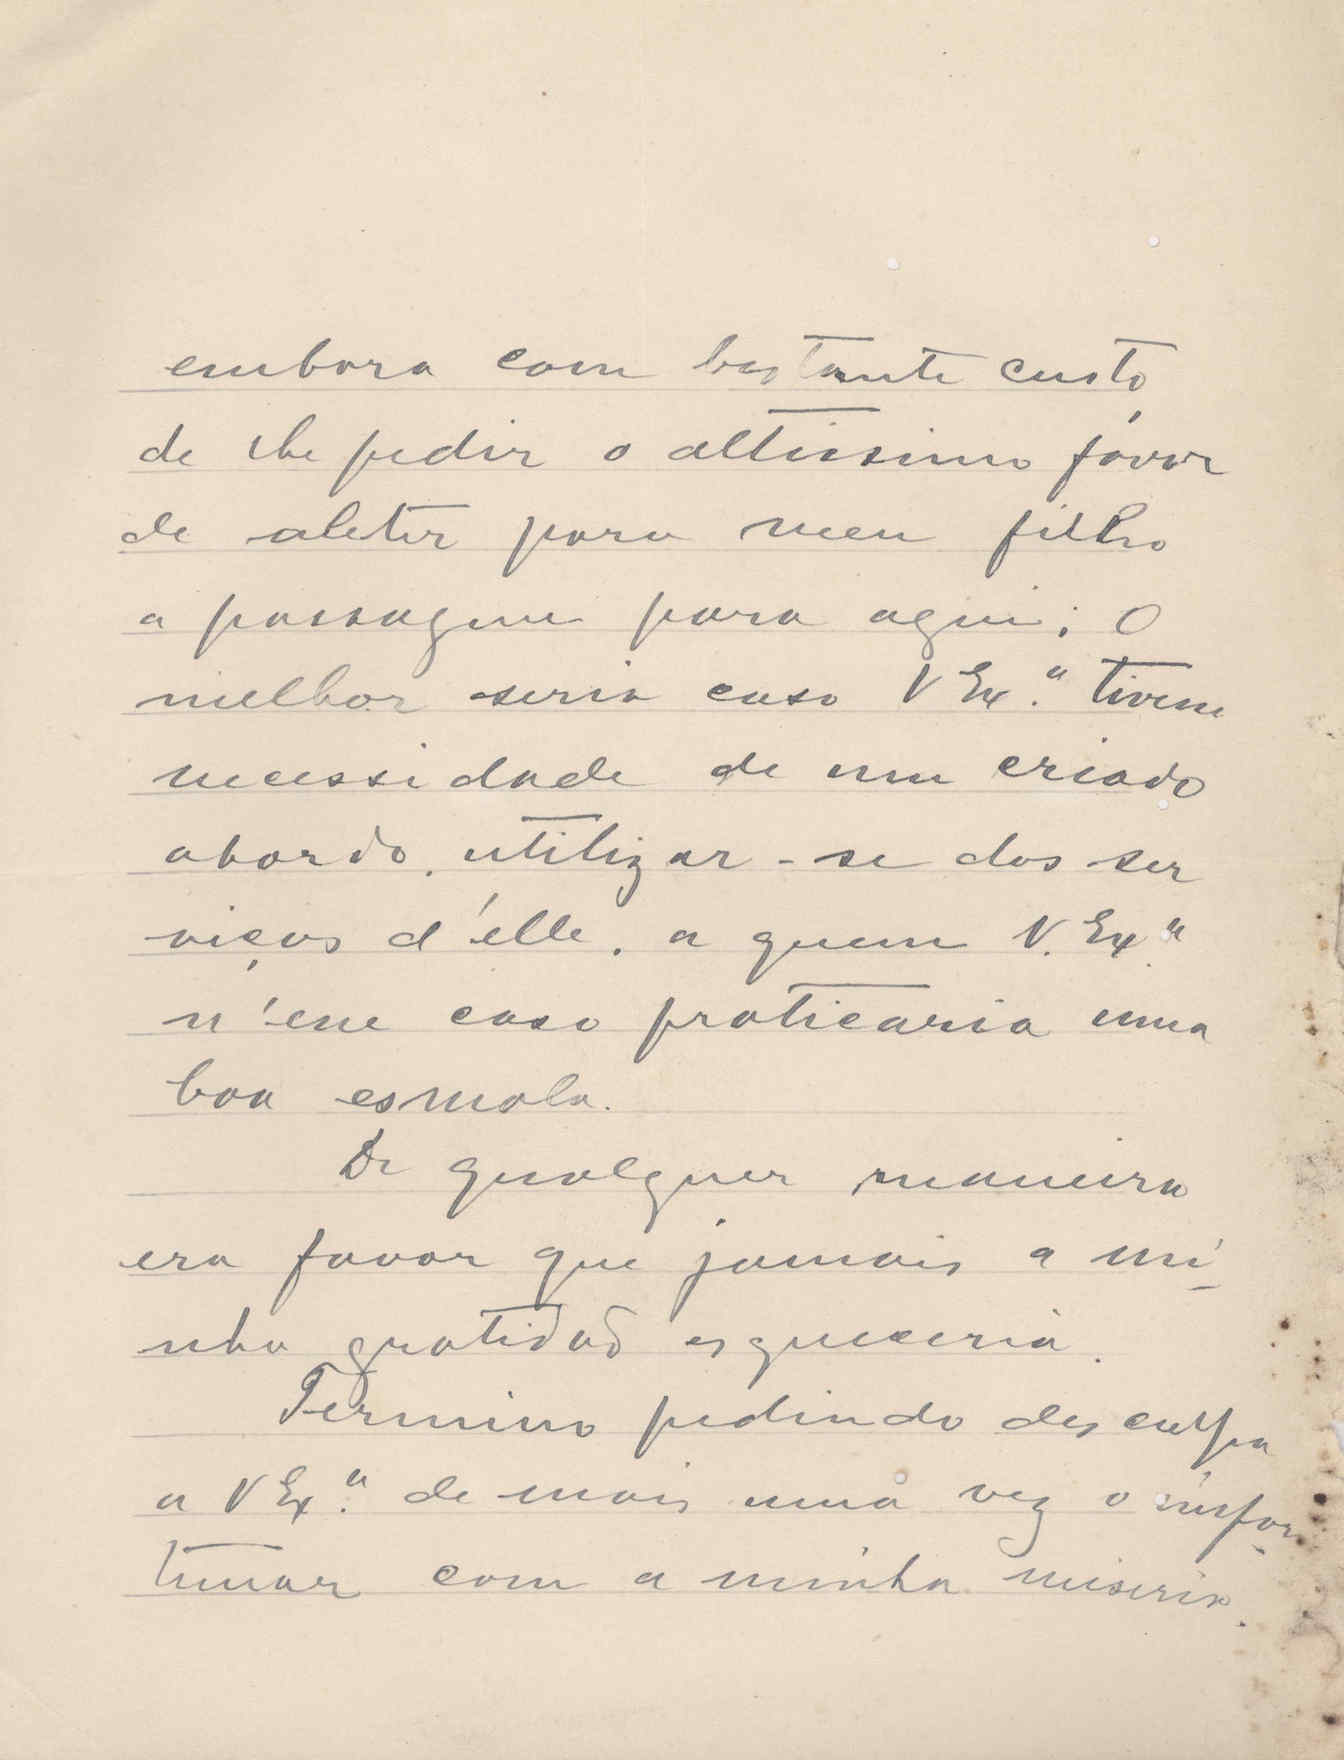 embora com bastante custo,
de lhe pedir o altissimo favor
de abeter para meu filho
a passagem para aqui; O
melhor seria caso V Ex.ª tivesse
necessidade de um criado
abordo, utilizar-se dos ser
viços d'elle, a quem V. Ex.ª
n'esse caso praticaria uma
boa esmola.
De qualquer maneira
era favor que jamais a mi-
nha gratidão esqueceria.
Termino pedindo desculpa
a V Ex.ª de mais uma vez o infor-
tunar com a minha miseria.